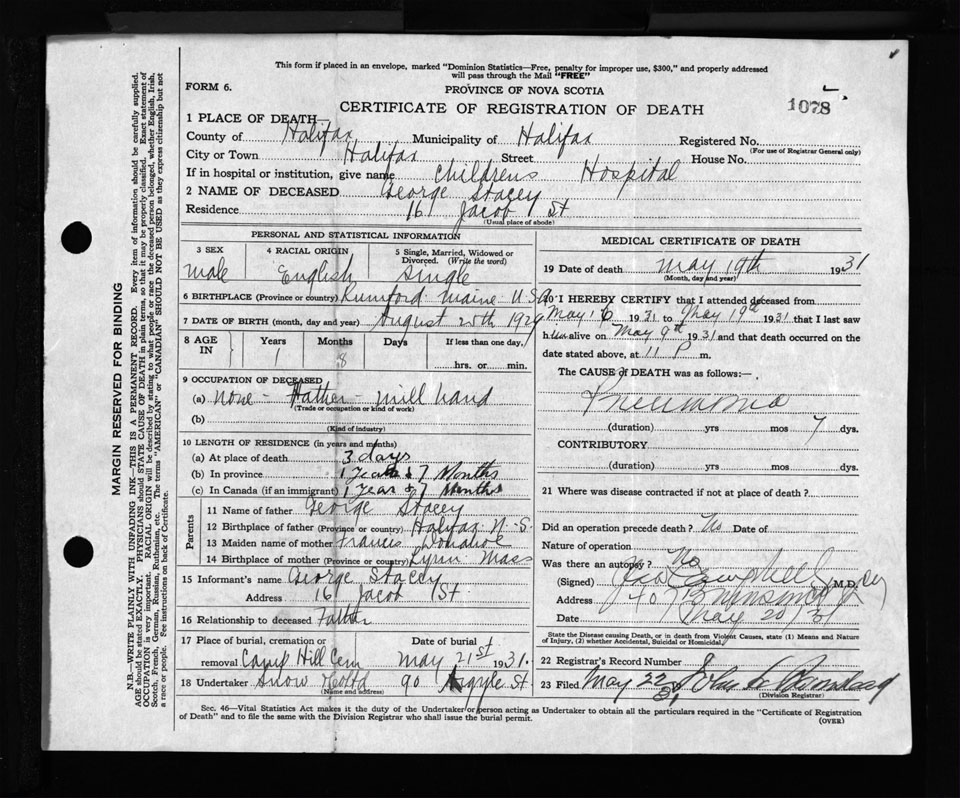 This form if placed in an envelope, marked "Dominion Statistics—Free, penalty for improper use, $300," and properly addressed
will pass through the Mail "FREE"
FORM 6.
PROVINCE OF NOVA SCOTIA
CERTIFICATE OF REGISTRATION OF DEATH
1078
1 PLACE OF DEATH
County of Halifax Municipality of Halifax Registered No.
(For use of Registrar General only)
City or Town Halifax Street House No.
If in hospital or institution, give name Childrens Hospital
2 NAME OF DECEASED George Stacey
Residence 16 Jacob St
(Usual place of abode)
PERSONAL AND STATISTICAL INFORMATION
3 SEX 4 RACIAL ORIGIN 5 Single, Married, Widowed or Divorced. (Write the word)
male English Single
6 BIRTHPLACE (Province or country) Rumford Maine U.S.A.
7 DATE OF BIRTH (month, day and year) August 20th 1929
8 AGE IN Years Months Days If less than one day,
1 8 hrs. or min.
9 OCCUPATION OF DECEASED
(a) none - Father - mill hand
(Trade or occupation or kind of work)
(b)
(Kind of industry)
10 LENGTH OF RESIDENCE (in years and months)
(a) At place of death 3 days
(b) In province 1 Year & 7 Months
(c) In Canada (if an immigrant) 1 Year & 7 Months
Parents
11 Name of father George Stacey
12 Birthplace of father (Province or country) Halifax N.S.
13 Maiden name of mother Francis Donahoe
14 Birthplace of mother (Province or country) Lynn Mass
15 Informant's name George Stacey
Address 16 Jacob St
16 Relationship to deceased Father
17 Place of burial, cremation or removal Camp Hill Cem
Date of burial May 21st 1931.
18 Undertaker Snow 90 Argyle St
(Name and address)
MEDICAL CERTIFICATE OF DEATH
19 Date of death May 19th 1931
(Month, day and year)
20 I HEREBY CERTIFY that I attended deceased from
May 16 1931 to May 19th 1931 that I last saw
him alive on May 9th 1931 and that death occurred on the
date stated above, at 11 P m.
The CAUSE of DEATH was as follows:—
Pneumonia
(duration) yrs mos 7 dys.
CONTRIBUTORY
(duration) yrs mos dys.
21 Where was disease contracted if not at place of death?
Did an operation precede death? No Date of
Nature of operation
Was there an autopsy? No
(Signed) M.D.
Address
Date May 20/31
State the Disease causing Death, or in death from Violent Causes, state (1) Means and Nature
of Injury, (2) whether Accidental, Suicidal or Homicidal.
22 Registrar's Record Number
23 Filed May 22 31
(Division Registrar)
Sec. 46—Vital Statistics Act makes it the duty of the Undertaker or person acting as Undertaker to obtain all the particulars required in the "Certificate of Registration
of Death" and to file the same with the Division Registrar who shall issue the burial permit.
(OVER)
MARGIN RESERVED FOR BINDING
N.B.—WRITE PLAINLY WITH UNFADING INK—THIS IS A PERMANENT RECORD. Every item of information should be carefully supplied.
AGE should be stated EXACTLY. PHYSICIANS should STATE CAUSE OF DEATH in plain terms, so that it may be properly classified. Exact statement of
OCCUPATION is very important. RACIAL ORIGIN will be described by stating to what people or race the deceased person belonged, whether English, Irish,
Scotch, French, German, Russian, Ruthenian, etc. The terms "AMERICAN" or "CANADIAN" SHOULD NOT BE USED as they express citizenship but not
a race or people. See instructions on back of Certificate.